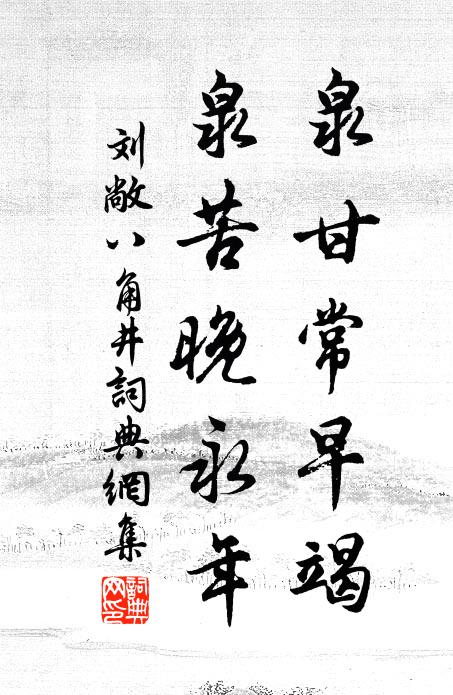 泉甘常早竭
泉苦晚永年
刘敞八角井詞典網集
詞典網印